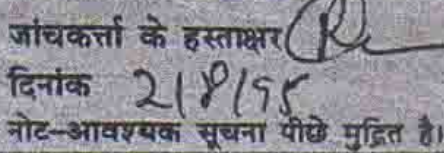 जांचकर्त्ता के हस्ताक्षर
दिनांक 2/8/95
नोट-आवश्यक सूचना पीछे मुद्रित है।